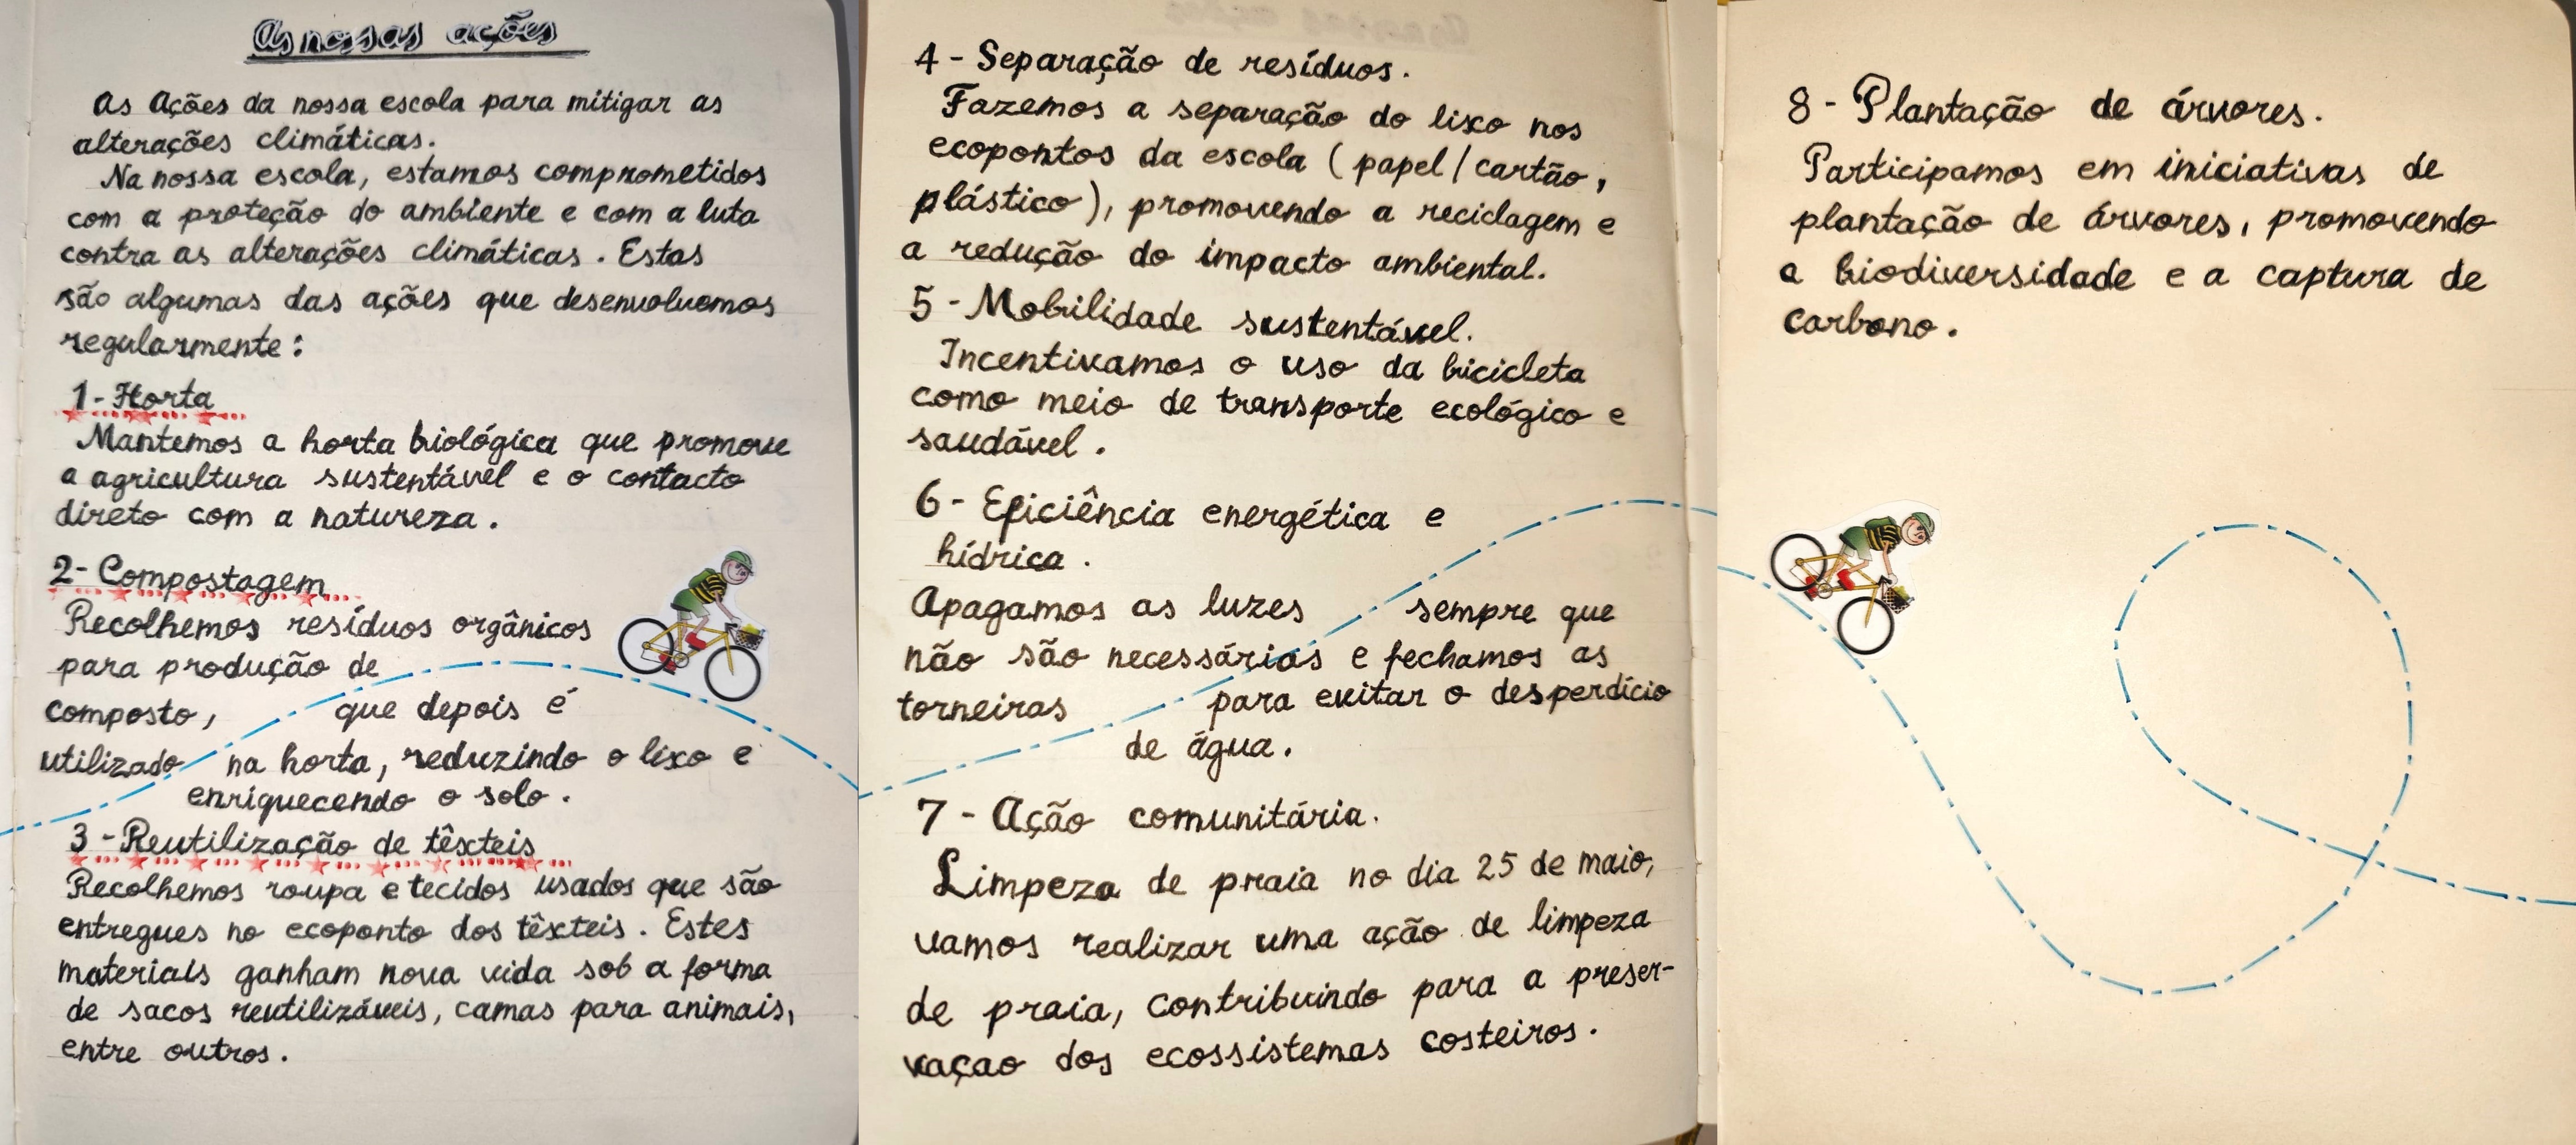 As nossas ações
As Ações da nossa escola para mitigar as
alterações climáticas.
Na nossa escola, estamos comprometidos
com a proteção do ambiente e com a luta
contra as alterações climáticas. Estas
são algumas das ações que desenvolvemos
regularmente:
1 - Horta
Mantemos a horta biológica que promove
a agricultura sustentável e o contacto
direto com a natureza.
2 - Compostagem
Recolhemos resíduos orgânicos
para produção de
composto, que depois é
utilizado na horta, reduzindo o lixo e
enriquecendo o solo.
3 - Reutilização de têxteis
Recolhemos roupa e tecidos usados que são
entregues no ecoponto dos têxteis. Estes
materiais ganham nova vida sob a forma
de sacos reutilizáveis, camas para animais,
entre outros.
4 - Separação de resíduos.
Fazemos a separação do lixo nos
ecopontos da escola (papel/cartão,
plástico), promovendo a reciclagem e
a redução do impacto ambiental.
5 - Mobilidade sustentável.
Incentivamos o uso da bicicleta
como meio de transporte ecológico e
saudável.
6 - Eficiência energética e
hídrica.
Apagamos as luzes sempre que
não são necessárias e fechamos as
torneiras para evitar o desperdício
de água.
7 - Ação comunitária.
Limpeza de praia no dia 25 de maio,
vamos realizar uma ação de limpeza
de praia, contribuindo para a preser-
vaçao dos ecossistemas costeiros.
8 - Plantação de árvores.
Participamos em iniciativas de
plantação de árvores, promovendo
a biodiversidade e a captura de
carbono.